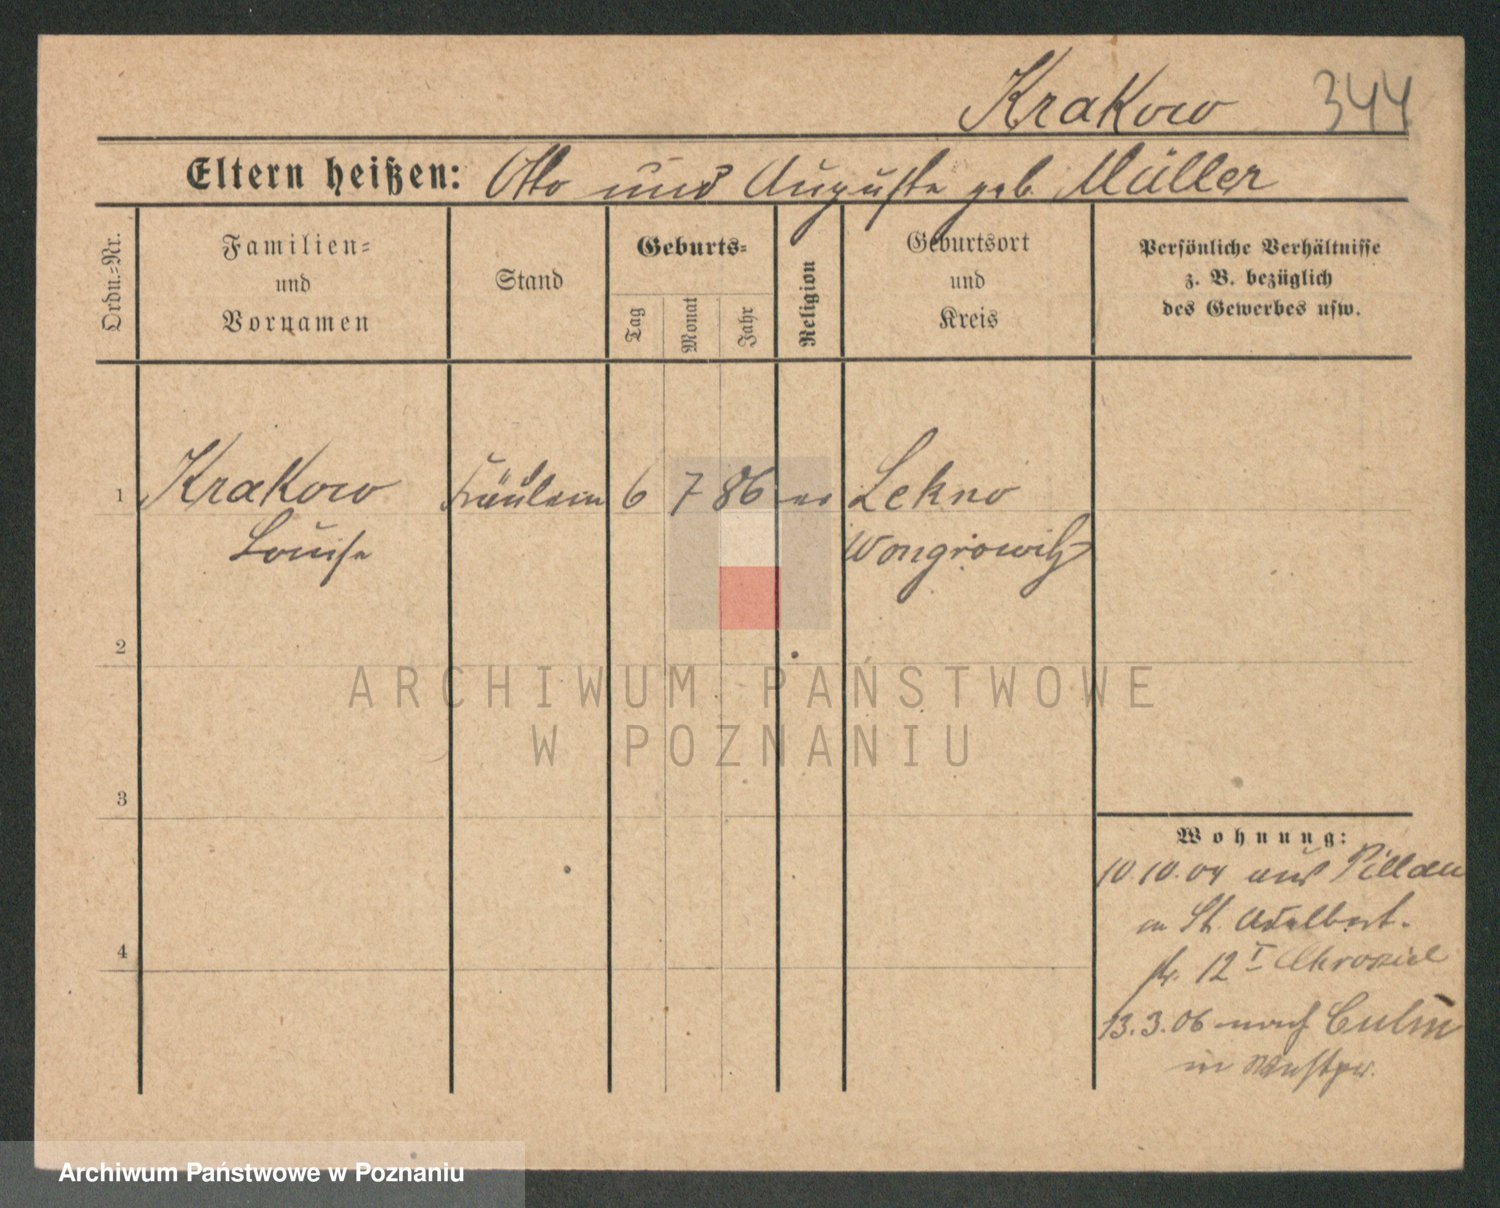 Krakow 344
Eltern heißen: Otto und Auguste geb. Müller
Ordn.=Nr.
Familien=
und
Vornamen
Stand
Geburts=
Tag
Monat
Jahr
Religion
Geburtsort
und
Kreis
Persönliche Verhältnisse
z. B. bezüglich
des Gewerbes usw.
1 Krakow Fräulein 6 7 86 ev Lekno
Louise Wongrowitz
2
3
4
Wohnung:
10.10.04 aus Pillau
St. Adalbert-
str. 12 I
13.3.06 nach Culm
in Westpr.
ARCHIWUM PAŃSTWOWE
W POZNANIU
Archiwum Państwowe w Poznaniu